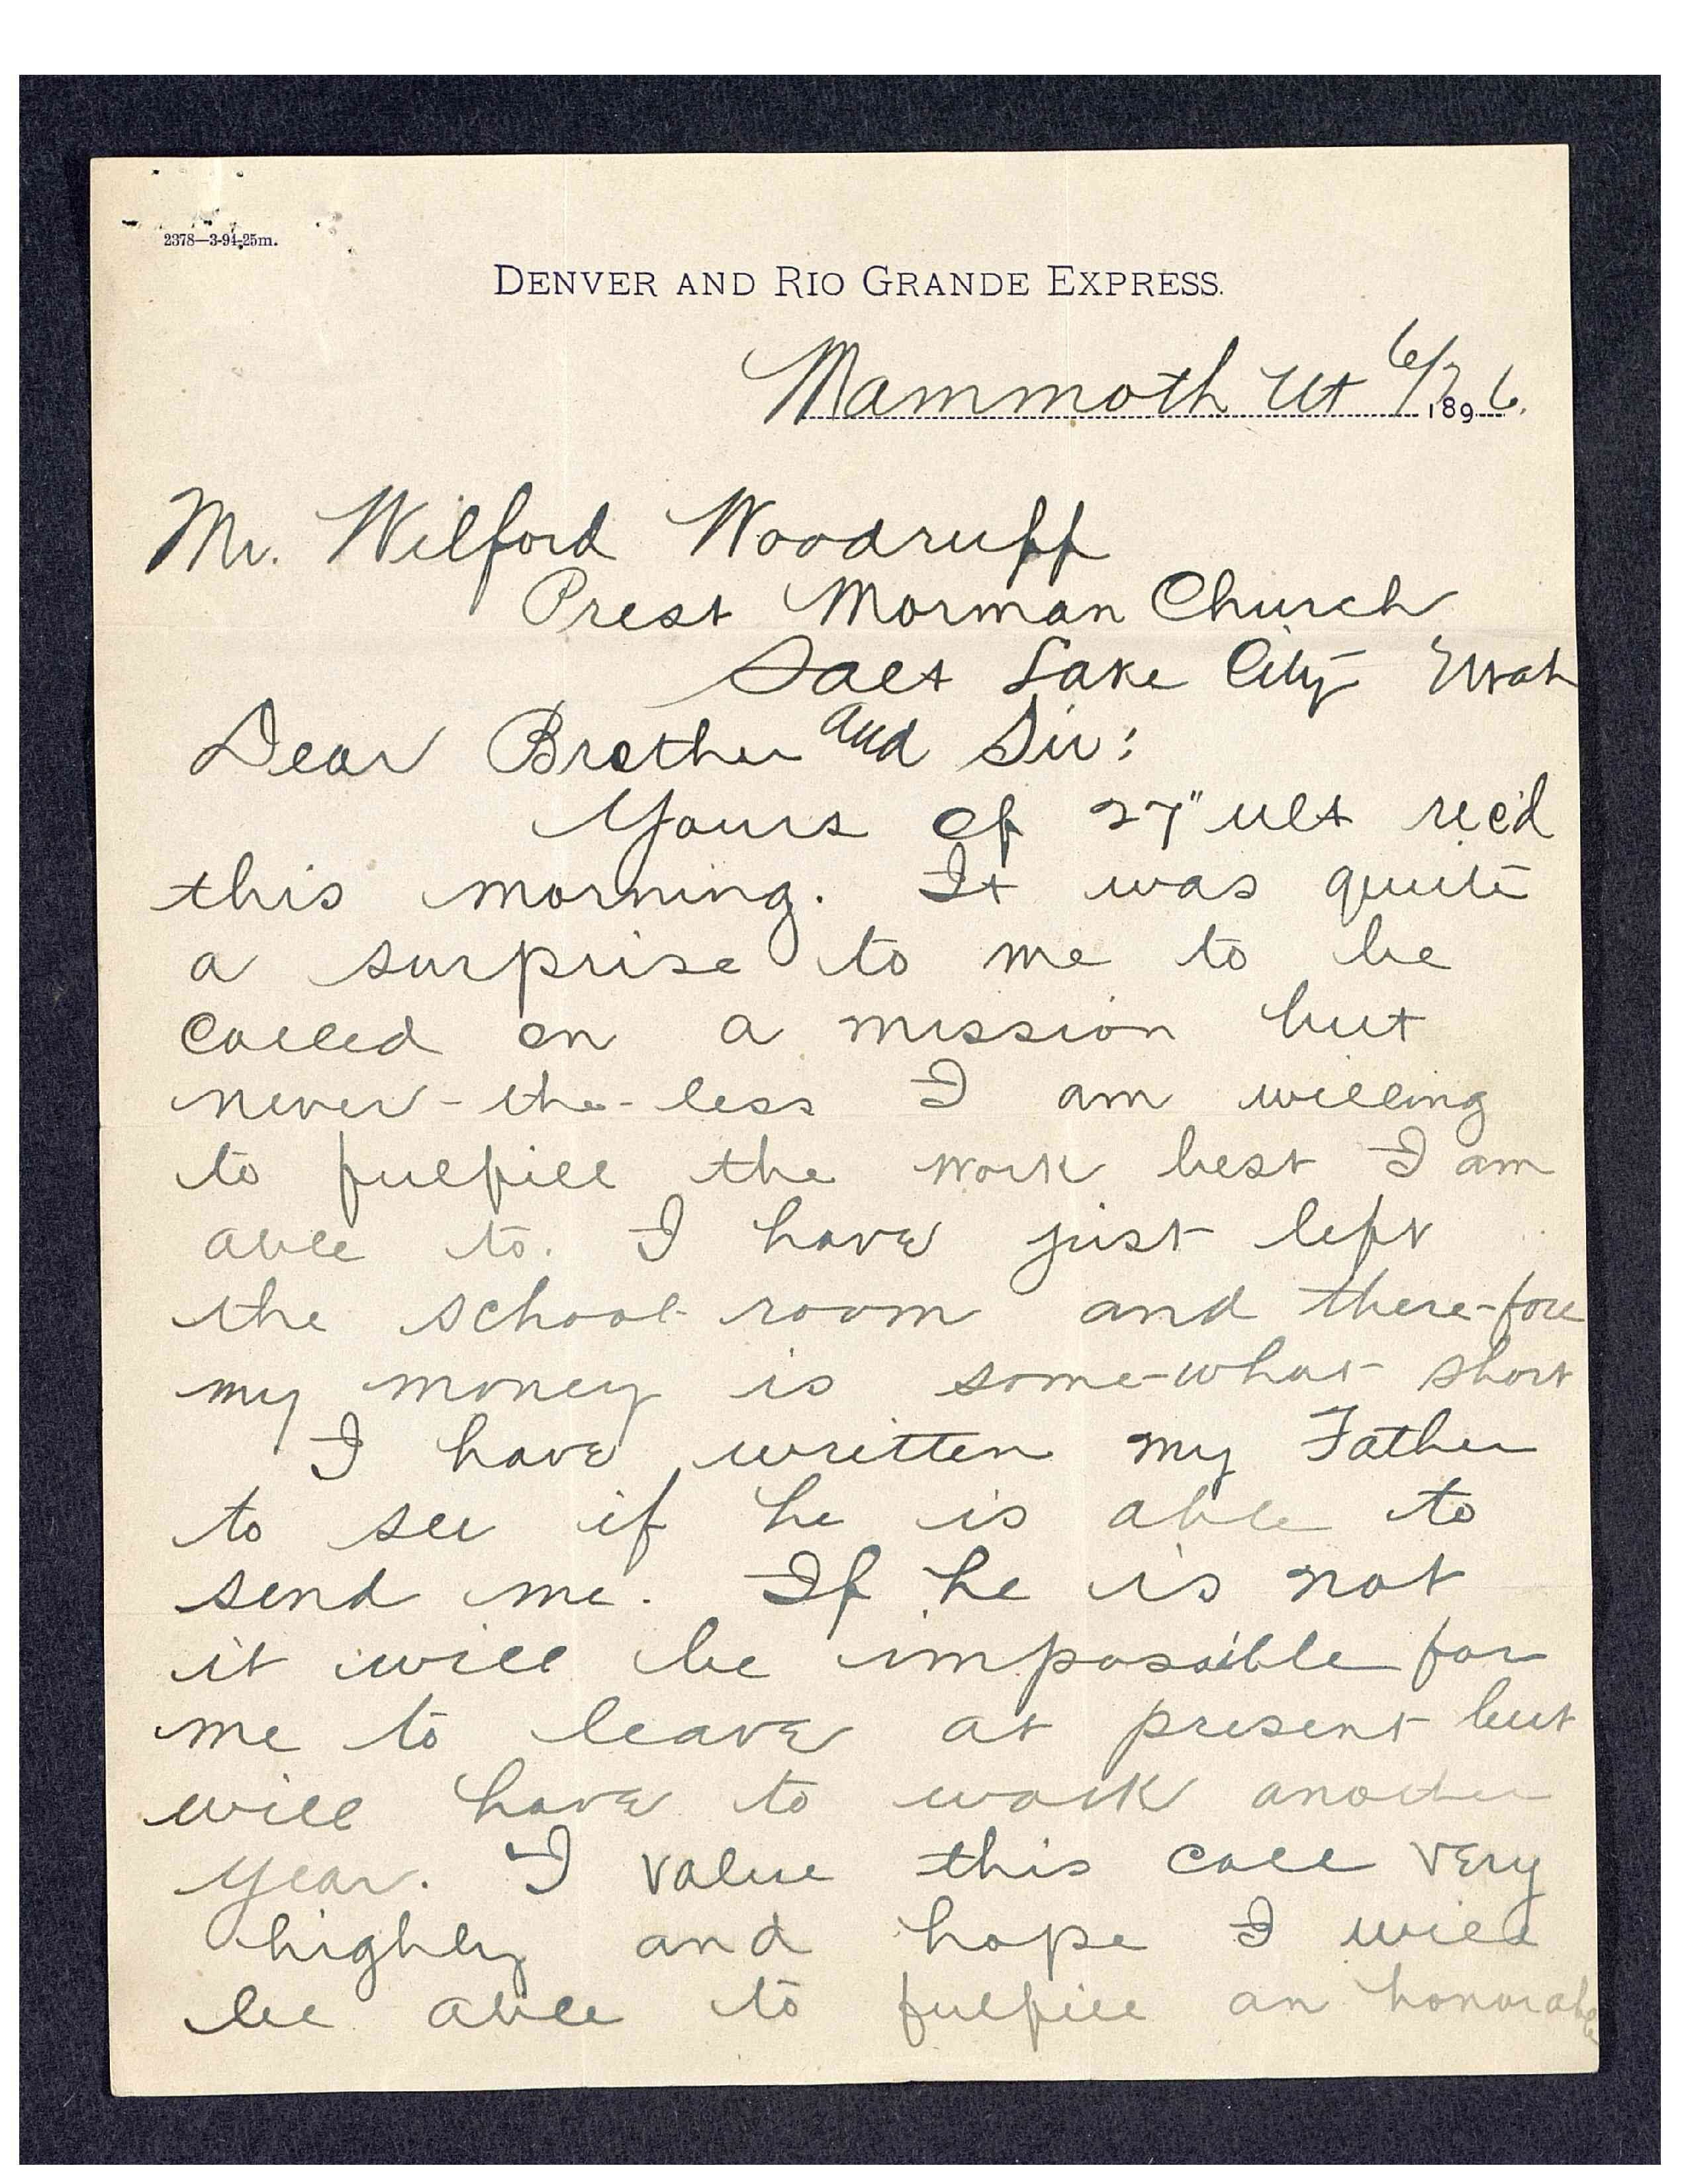 2378—3-94-25m.
DENVER AND RIO GRANDE EXPRESS.
Mammoth Ut 6/7 1896.
Mr. Wilford Woodruff
Prest Morman Church
Salt Lake City Utah
Dear Brother and Sir:
Yours of 27" ult rec'd
this morning. It was quite
a surprise to me to be
called on a mission but
never-the-less I am willing
to fulfill the work best I am
able to. I have just left
the school-room and there-fore
my money is some-what short
I have written my Father
to see if he is able to
send me. If he is not
it will be impossible for
me to leave at present but
will have to work another
year. I value this call very
highly and hope I will
be able to fulfill an honorable